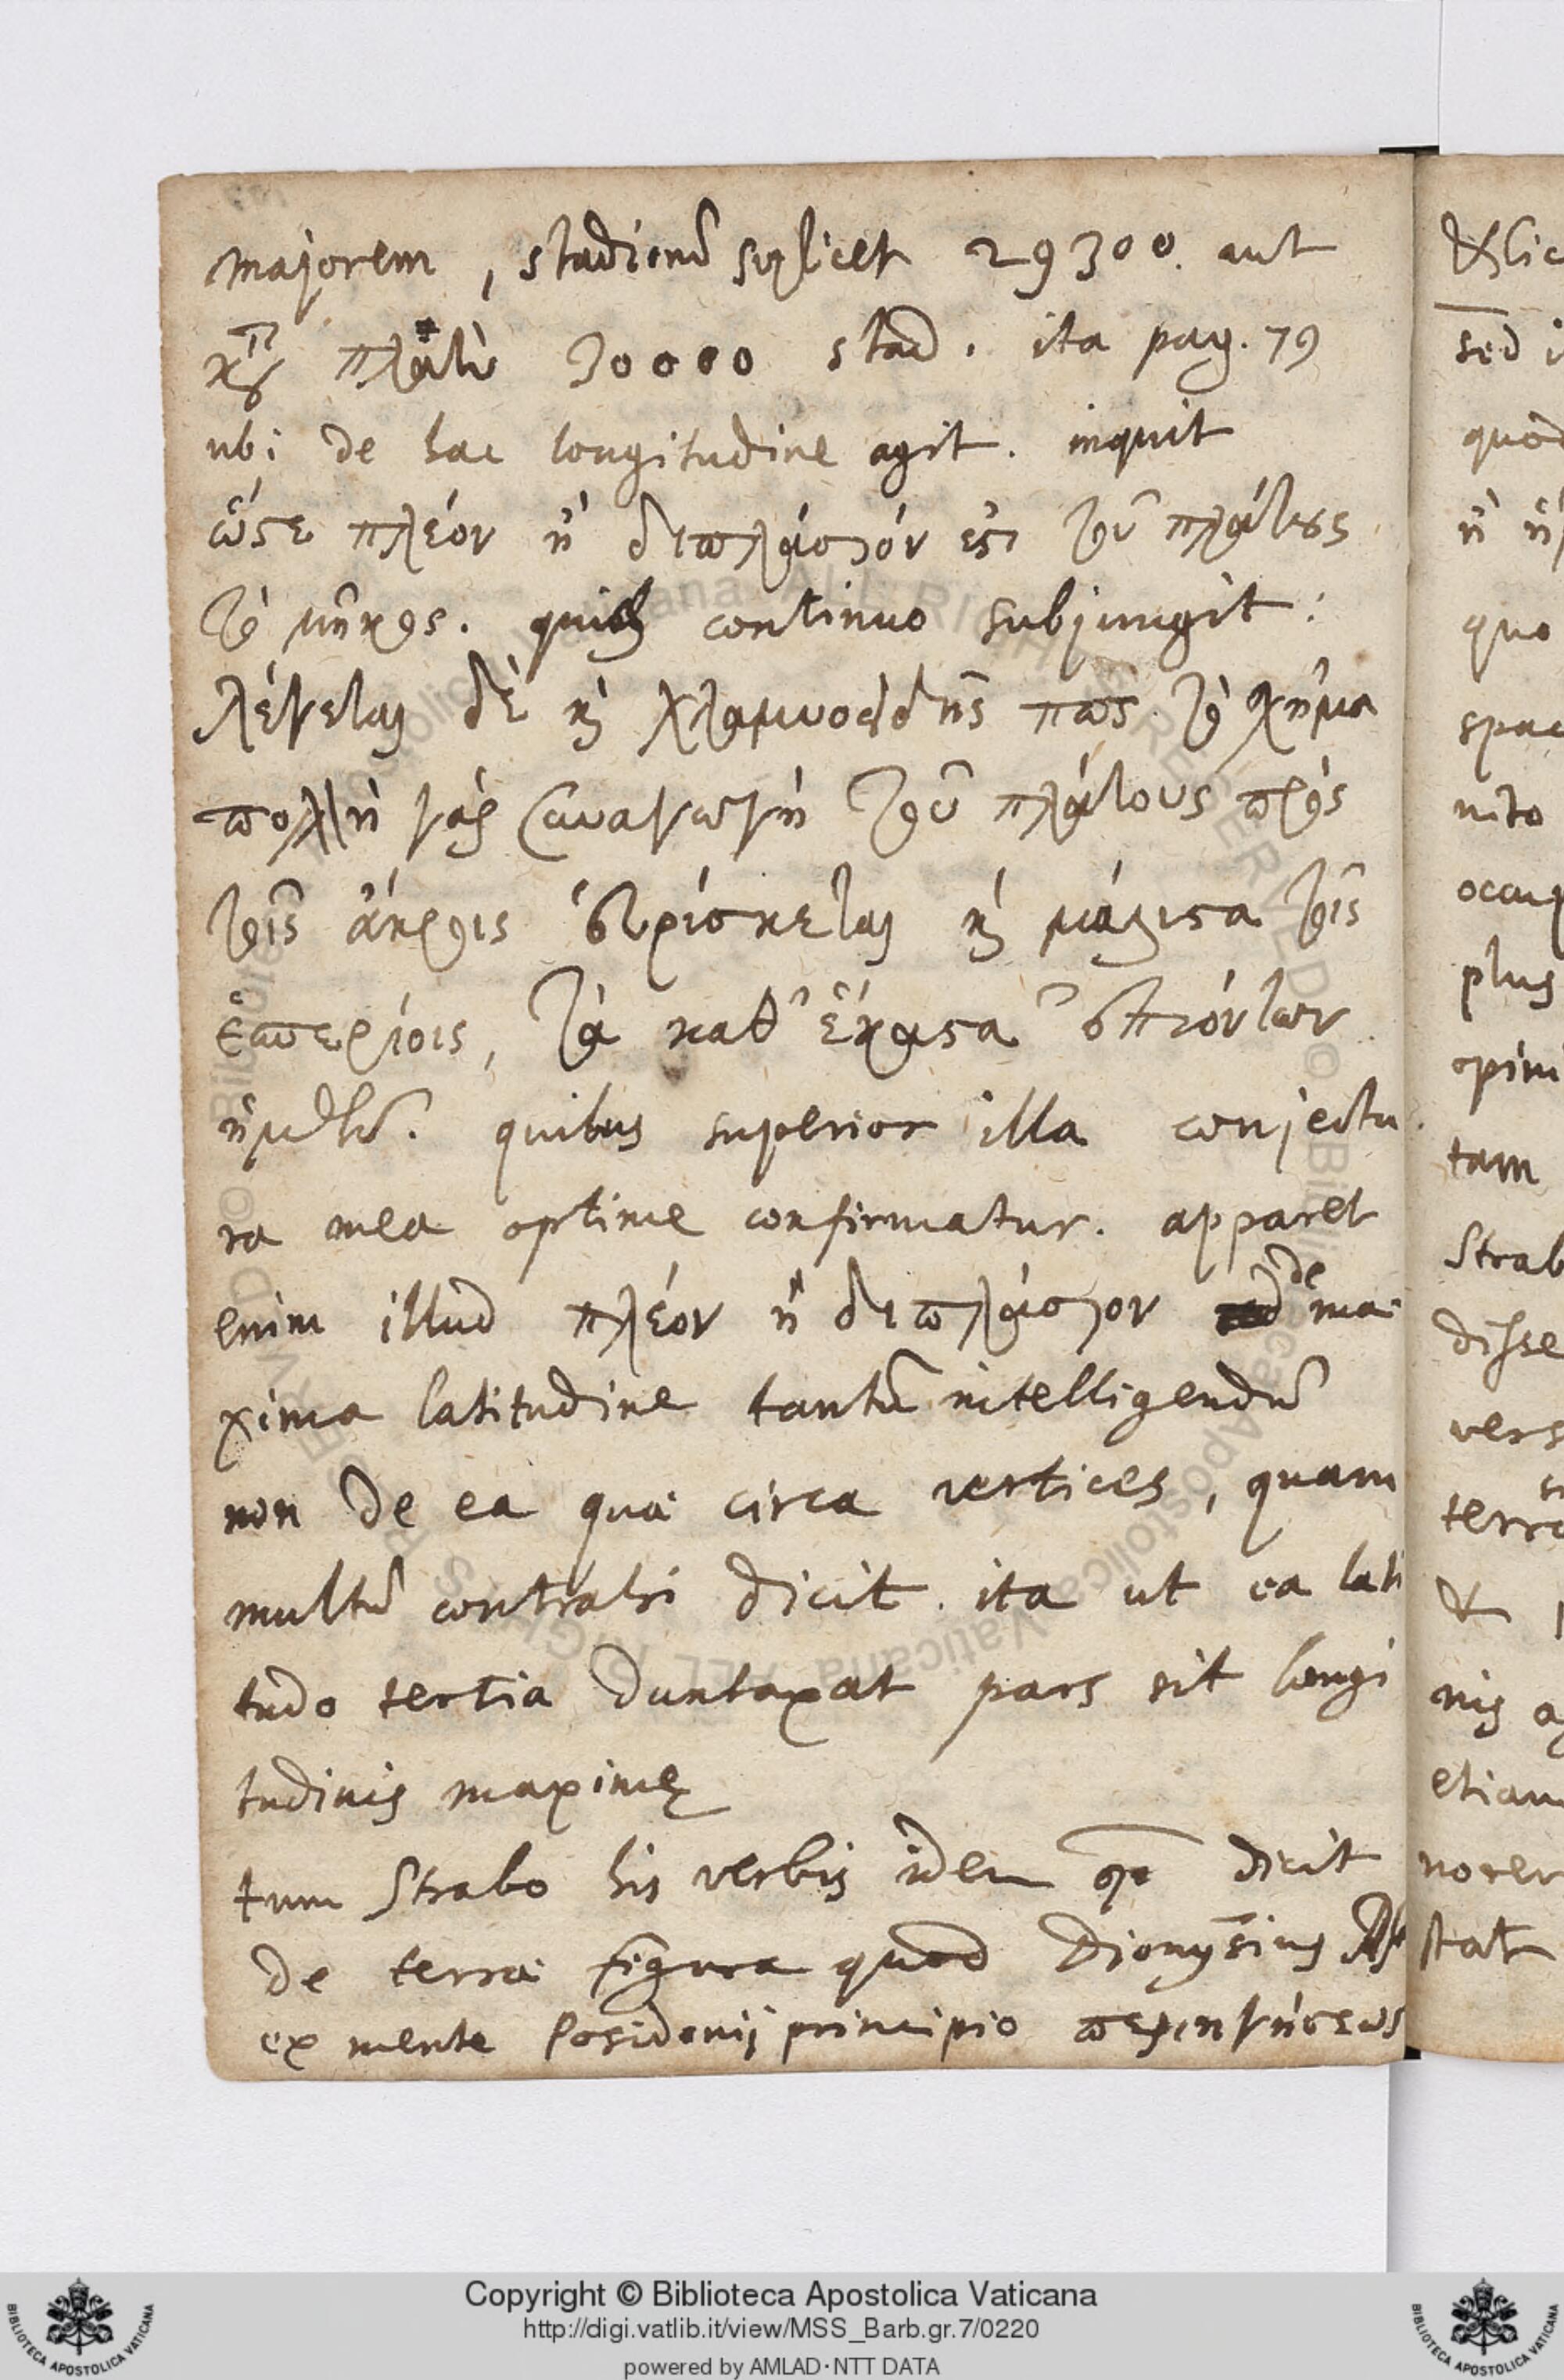 majorem, stadiorũ scilicet 29300. aut
πλατὺ 30000 stad. ita pag. 79
ubi de hac longitudine agit. inquit
ὥστε πλέον ἢ διπλάσιόν ἐστι τοῦ πλάτους
τὸ μῆκος. continuo subjungit:
λέγεται δὲ κ̀ χλαμυοειδὴς πως τὸ χῆμα
πολλὴ γὰρ συναγωγὴ τοῦ πλάτους πρὸς
τοῖς ἄκροις εὑρίσκεται κ̀ μάλιστα τοῖς
ἑσπερίοις, τὰ καθ' ἕκαστα ἐπιόντων
ἡμῶν. quibus superior illa conjectu
ra mea optime confirmatur. apparet
enim illud πλέον ἢ διπλάσιον de ma
xima latitudine tantũ intelligendũ
non de ea quæ circa vertices, quam
multũ contrahi dicit. ita ut ea lati
tudo tertia duntaxat pars sit longi
tudinis maximę
tum Strabo his verbis idem dicit
de terræ figura quod Dionysius
ex mente Posidonij principio περιηγήσεως
&
sed i
quod
ἢ
quo
spac
nito
occup
plus
opini
tam
Strab
disse
vers
terra
&
nis a
etiam
nover
stat
Copyright © Biblioteca Apostolica Vaticana
http://digi.vatlib.it/view/MSS_Barb.gr.7/0220
powered by AMLAD·NTT DATA
BIBLIOTECA APOSTOLICA VATICANA
BIBLIOTECA APOSTOLICA VATICANA